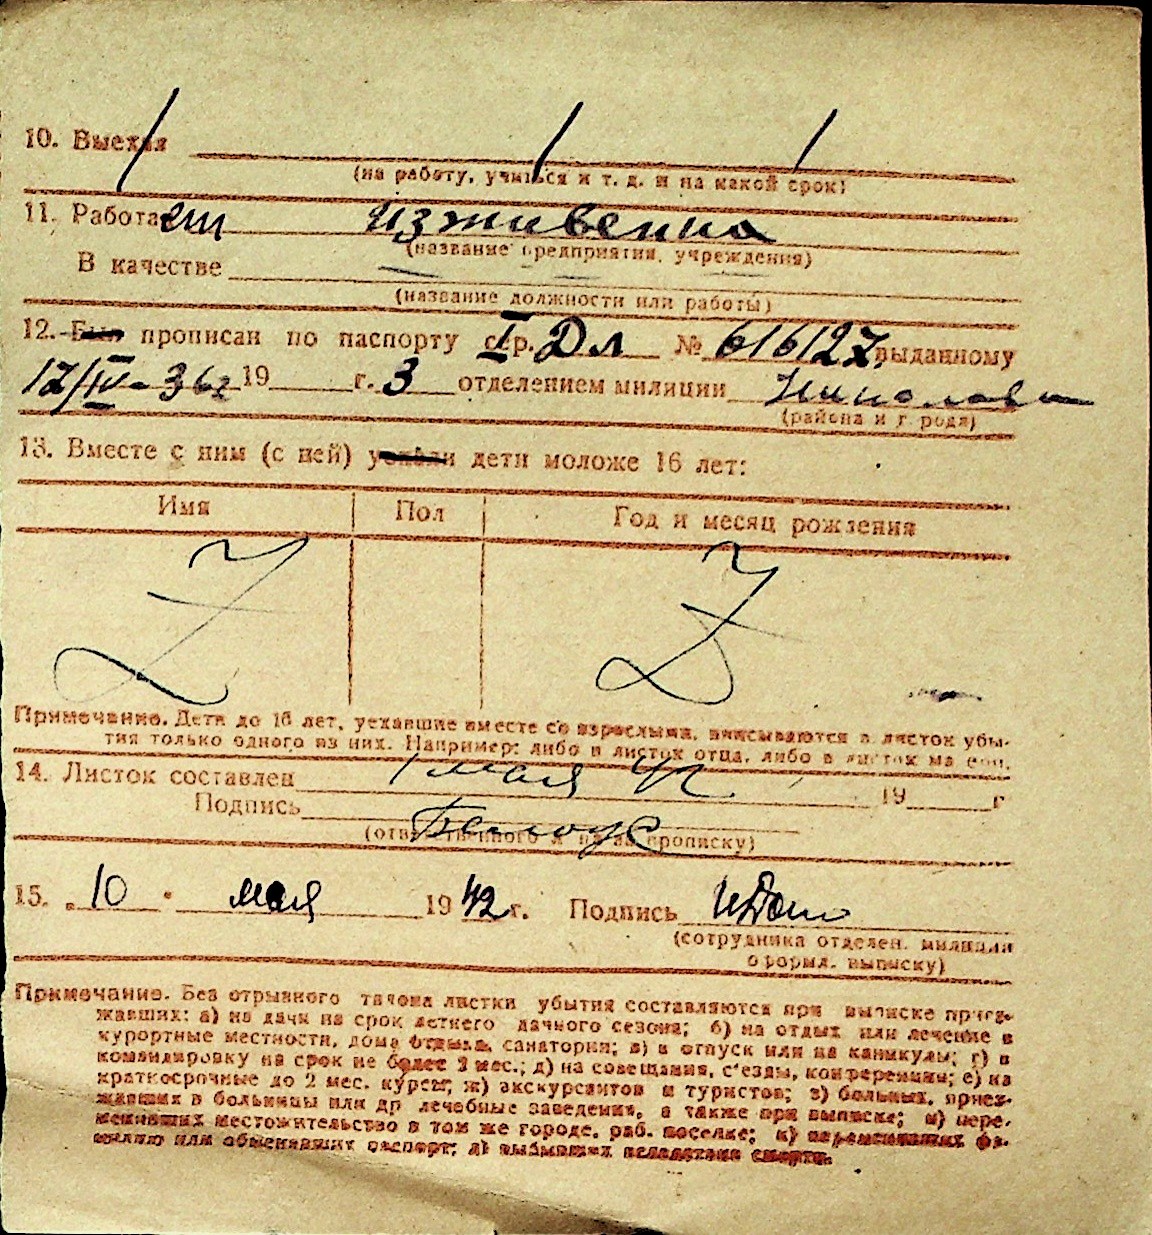 10. Выехал
(на работу, учиться и т. д. и на какой срок)
11. Работает иждивенка
(название предприятия, учреждения)
В качестве
(название должности или работы)
12. Был прописан по паспорту сер. I Дл № 616127 выданному
17/IV-36г 19 г. 3 отделением милиции
(района и города)
13. Вместе с ним (с ней) уехали дети моложе 16 лет:
Имя Пол Год и месяц рождения
Z Z
Примечание. Дети до 16 лет, уехавшие вместе со взрослыми, вписываются в листок убы-
тия только одного из них. Например: либо в листок отца, либо в листок матери.
14. Листок составлен 1 мая 42 19 г
Подпись Белоус
(ответственного л за прописку)
15. „10" мая 1942 г. Подпись
(сотрудника отделен. милиции
оформл. выписку)
Примечание. Без отрывного талона листки убытия составляются при выписке приез-
жавших: а) на дачи на срок летнего дачного сезона; б) на отдых или лечение в
курортные местности, дома отдыха, санатории; в) в отпуск или на каникулы; г) в
командировку на срок не более 2 мес.; д) на совещания, с'езды, конференции; е) на
краткосрочные до 2 мес. курсы; ж) экскурсантов и туристов; з) больных, приез-
жавших в больницы или др лечебные заведения, а также при выписке; и) пере-
менивших местожительство в том же городе, раб. поселке; к) переменивших фа-
милию или обменявших паспорт; л) выбывших вследствие смерти.